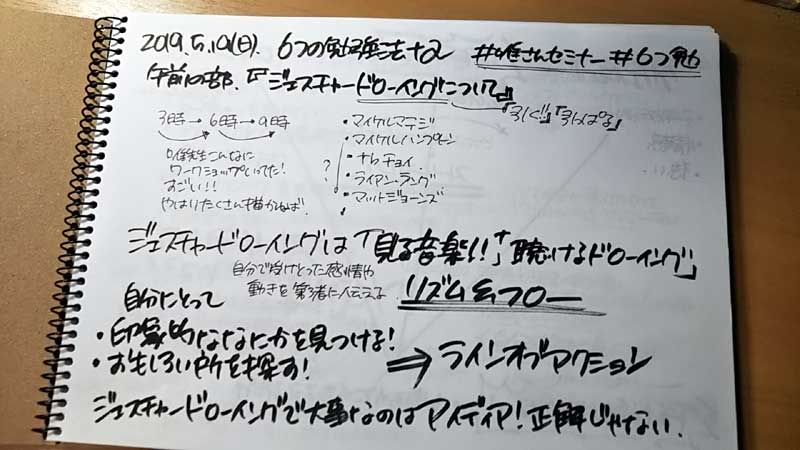 2019.5.19(日). 6つの勉強法+α #唯さんセミナー #6つ勉
午前の部.『ジェスチャードローイングについて』
「引く!!」「引っぱる」
3時→6時→9時
唯先生こんなに
ワークショップいってた!
すごい!!
やはりたくさん描かねば.
・マイケルマテジ
・マイケルハンプトン
・ナムチョイ
・ライアン・ラング
・マットジョーンズ
?
ジェスチャードローイングは「見る音楽!!」+「聴けるドローイング」
自分で受けとった感情や
動きを第3者に伝える
リズム&フロー
自分にとって
・印象的ななにかを見つける!
・おもしろい所を探す!
⇒ラインオブアクション
ジェスチャードローイングで大事なのはアイディア!正解じゃない.